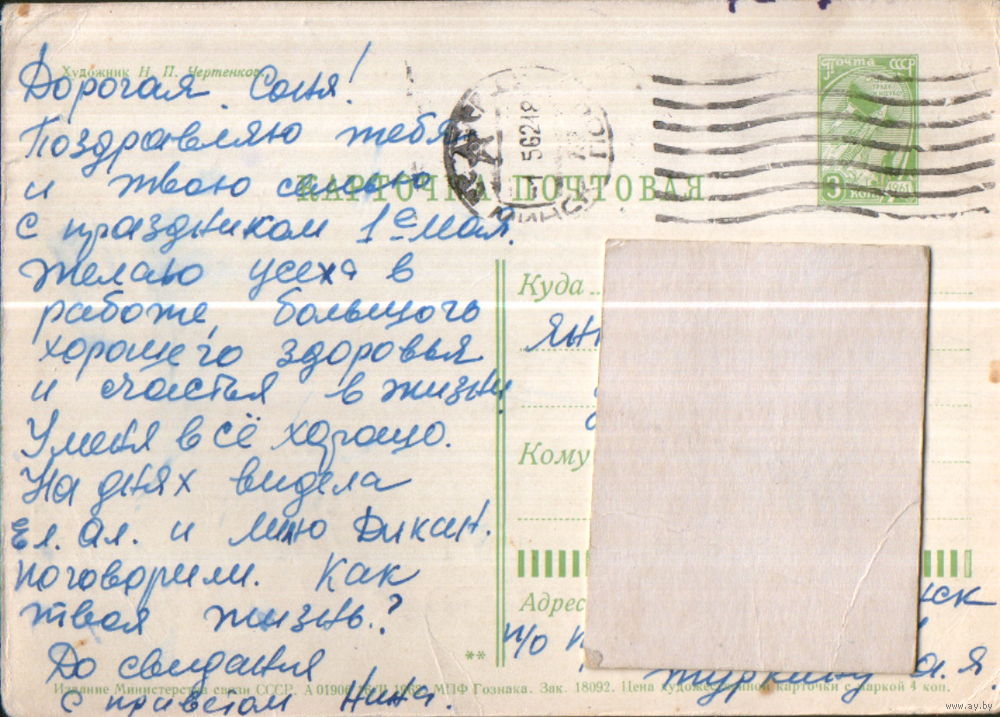 Художник Н. П. Чертенков.
Дорогая Соня!
Поздравляю тебя
и твою семью
с праздником 1ᵉ мая.
желаю усеха в
работе, большого
хорошего здоровья
и счастья в жизни
У меня всё хорошо.
На днях видела
Ел. Ал. и Лилю Дикан.
поговорили. Как
твоя жизнь?
До свидания
с приветом Нина.
КАРТОЧКА ПОЧТОВАЯ
Почта СССР
3 коп. 1961
МИНСК
5 62 18
Куда
Ян
Кому
Адрес
нск
п/о
**
Издание Министерства связи СССР. А 01906 МПФ Гознака. Зак. 18092. Цена художественной карточки с маркой 4 коп.
www.ay.by